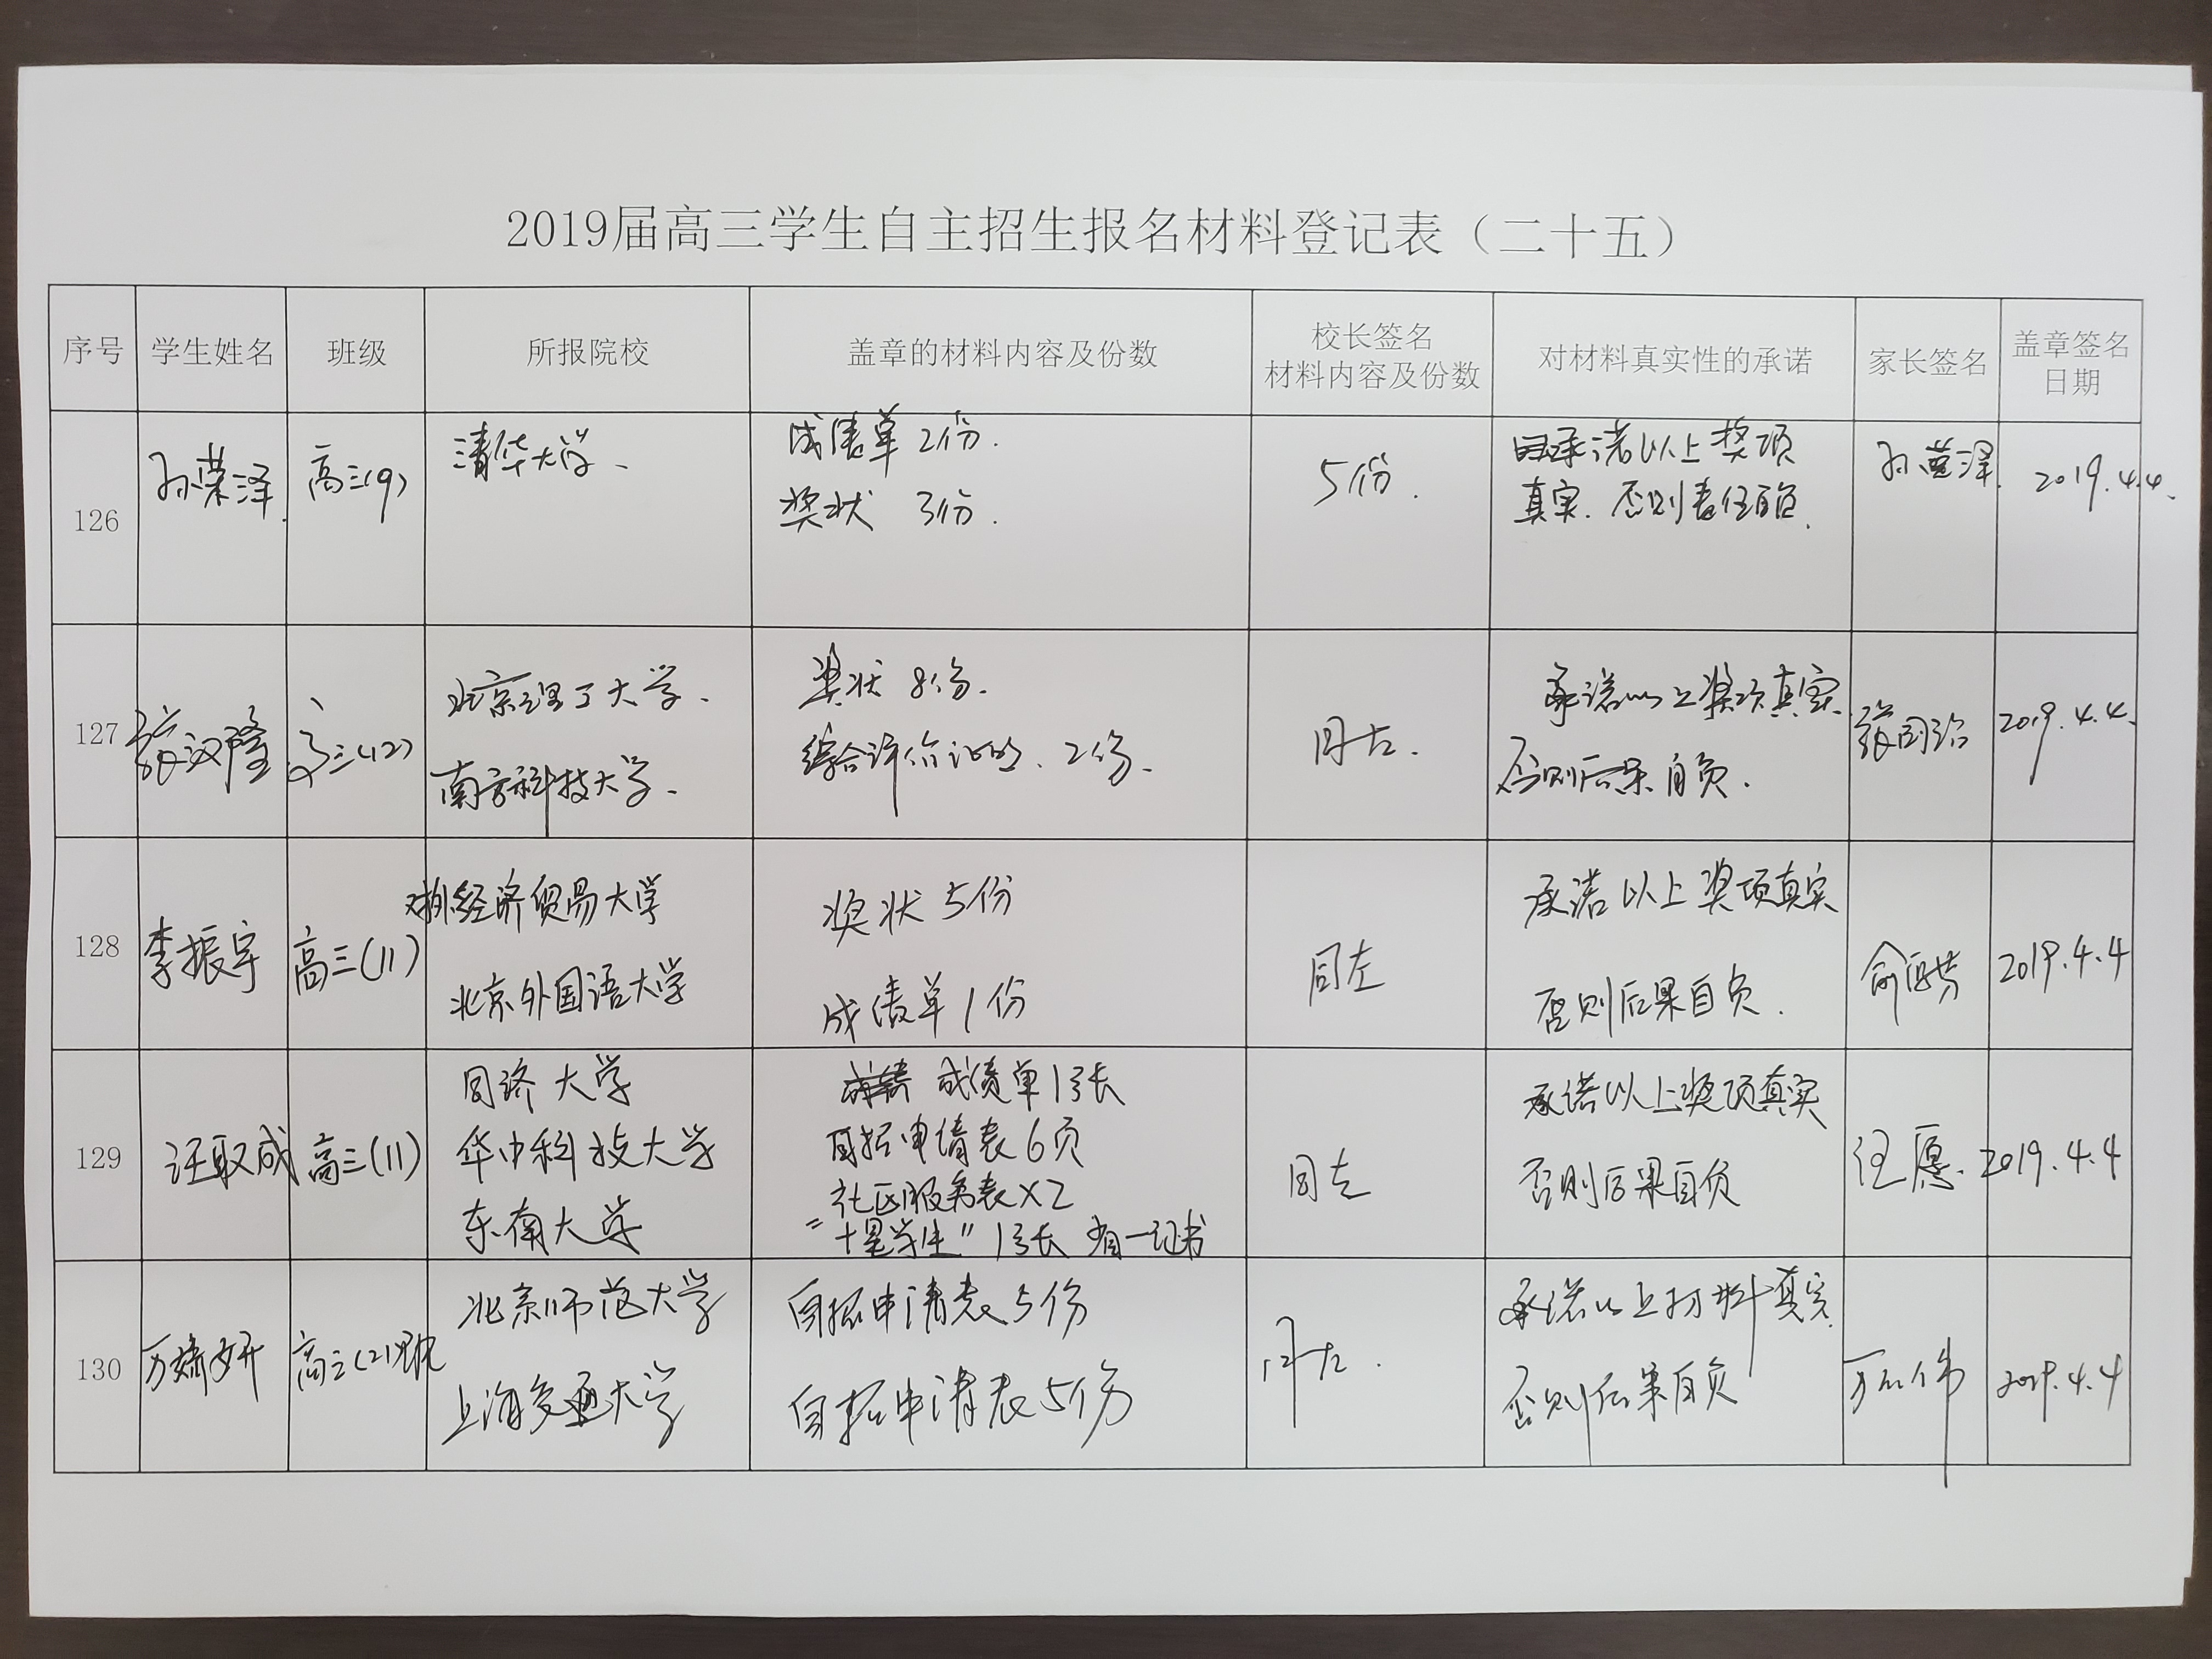 2019届高三学生自主招生报名材料登记表（二十五）
序号 学生姓名 班级 所报院校 盖章的材料内容及份数 校长签名 材料内容及份数 对材料真实性的承诺 家长签名 盖章签名 日期
126 孙荣泽 高三(9) 清华大学、 成绩单 2份. 5份. 承诺以上奖项 2019.4.4、
奖状 3份. 真实. 否则责任自负.
127 张汉隆 高三(12) 北京理工大学、 奖状 8份. 同左. 承诺以上奖项真实. 张国治 2019.4.4、
南京科技大学、 综合评价证明、2份、 否则后果自负.
128 李振宇 高三(11) 对外经济贸易大学 奖状 5份 同左 承诺以上奖项真实 2019.4.4
北京外国语大学 成绩单 1份 否则后果自负.
129 汪取成 高三(11) 同济大学 成绩单13张 同左 承诺以上奖项真实 汪愿. 2019.4.4
华中科技大学 自招申请表6页 否则后果自负
东南大学 社区服务表×2
“十星学生”13张 有一证书
130 万婧妍 高三(2)班 北京师范大学 自招申请表5份 同左. 承诺以上材料真实. 2019.4.4
上海交通大学 自招申请表5份 否则后果自负